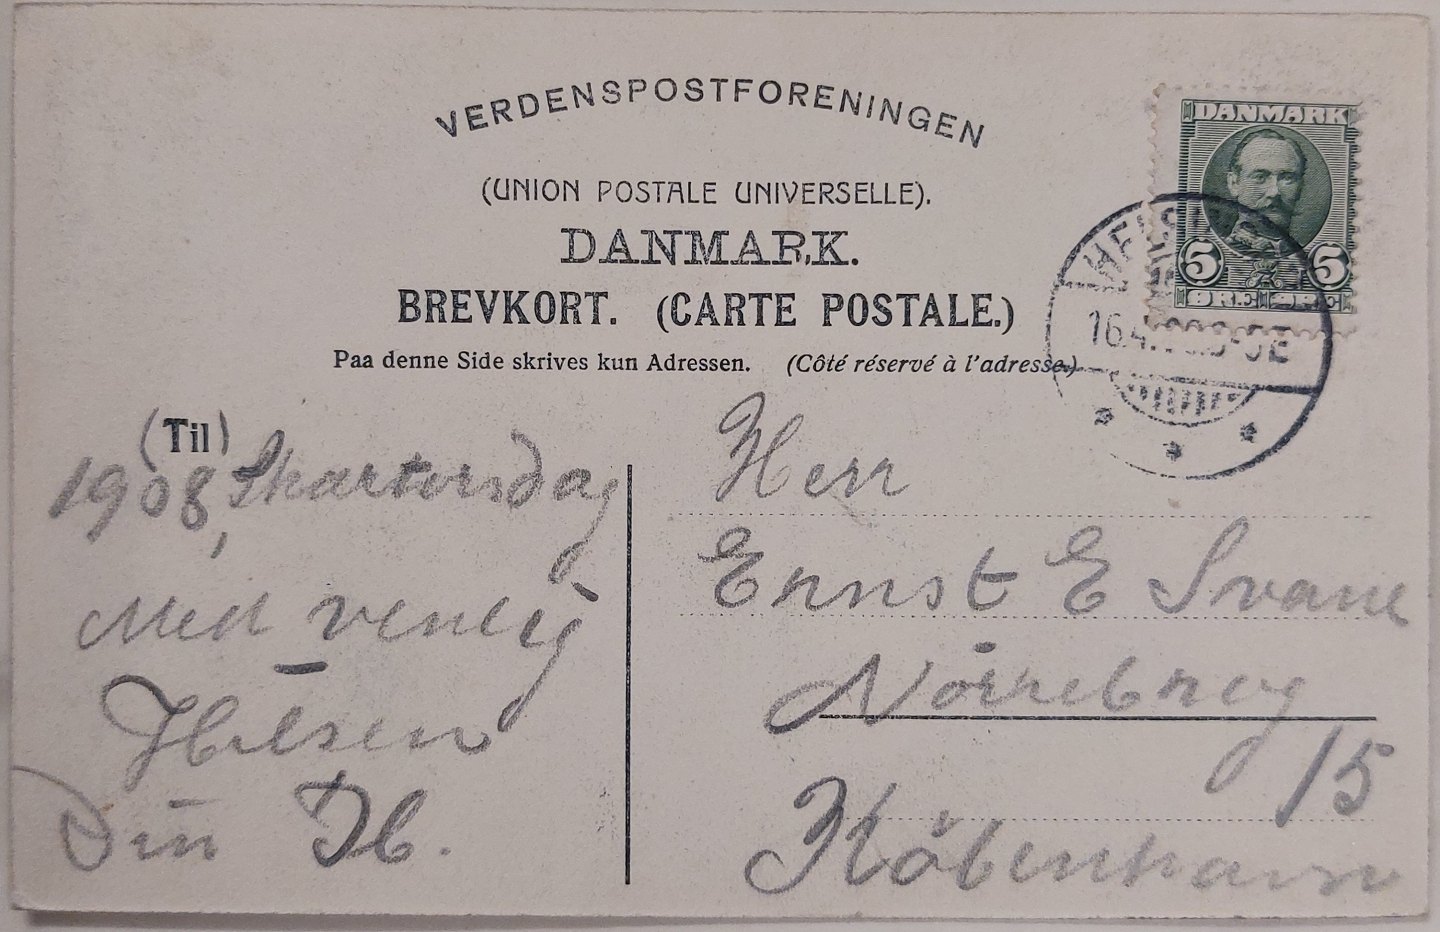 VERDENSPOSTFORENINGEN
(UNION POSTALE UNIVERSELLE).
DANMARK.
BREVKORT. (CARTE POSTALE.)
Paa denne Side skrives kun Adressen. (Côté réservé à l'adresse.)
DANMARK
5 5
ØRE ØRE
HELSI
16.4.
(Til)
1908, Skartorsdag
Med venlig
Hilsen
Din
Herr
Ernst E Svane
Nörrebrog
15
Köbenhavn